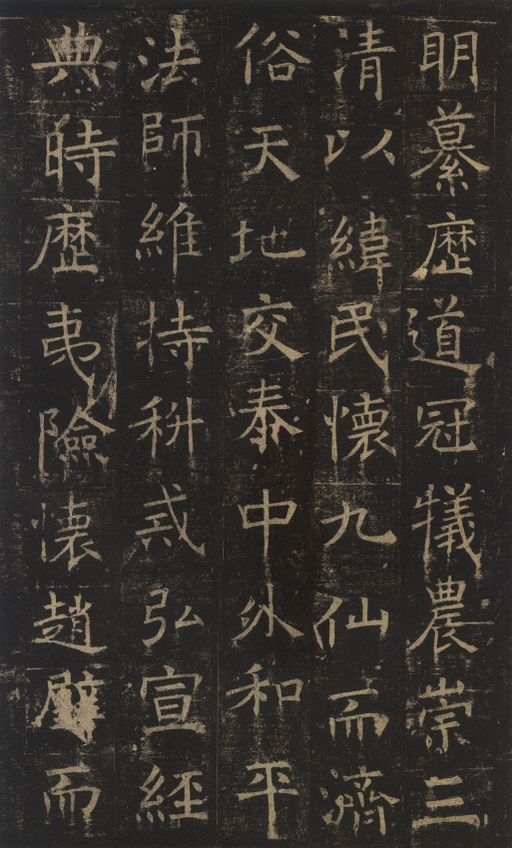 明纂歴道冠犧農崇三
清以緯民懷九仙而濟
俗天地交泰中外和平
法師維持科戒弘宣經
典時歴夷險懷趙璧而